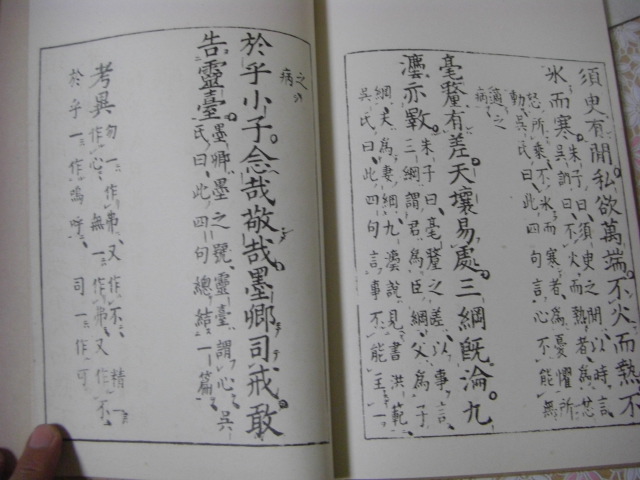 須臾有間。私欲萬端。不火而熱。不
氷而寒。朱子曰、須臾之間、以時言、
吳氏曰、不火而熱者、爲忿
怒所乘、不氷而寒者、爲憂懼所
動、吳氏曰、此四句言心不能無
適之
病
毫釐有差。天壤易處。三綱既淪。九
灋亦斁。朱子曰、毫釐之差、以事言、
三綱謂君爲臣綱、父爲子
綱、夫爲妻綱、九灋說見書洪範、
吳氏曰、此四句言事不能主一
之
病
於乎小子。念哉敬哉。墨卿司戒。敢
告靈臺。墨卿墨之號、靈臺謂心、吳
氏曰、此四句總結一篇、
考異 勿一作弗、又作不、精一
作心、無一作弗、又作不、
於乎一作嗚呼、司一作可、